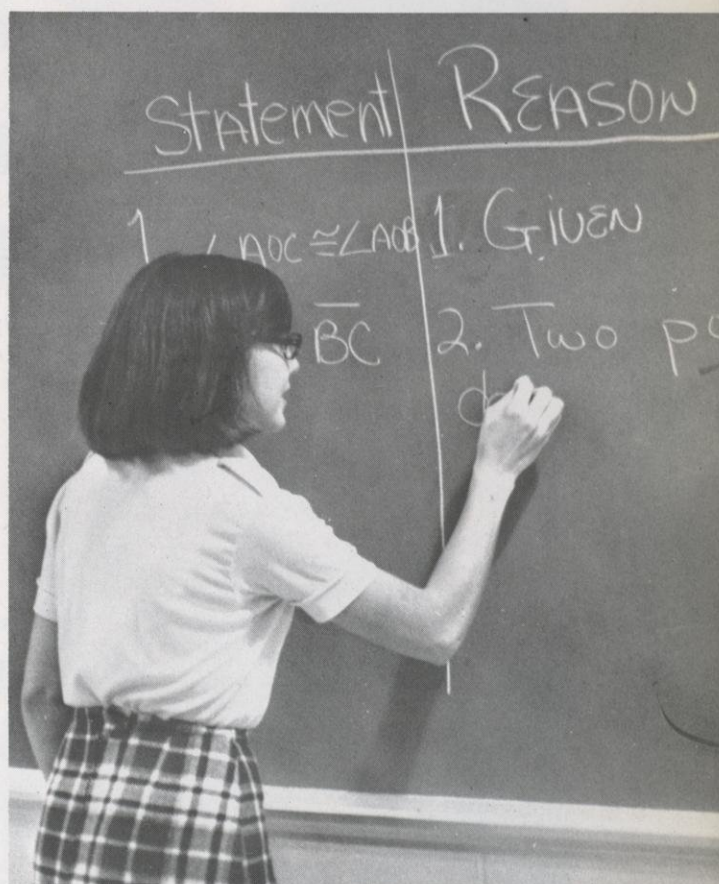 Statement REASON
1 ∠AOC ≅ ∠AOB 1. GiVEN
BC 2. Two